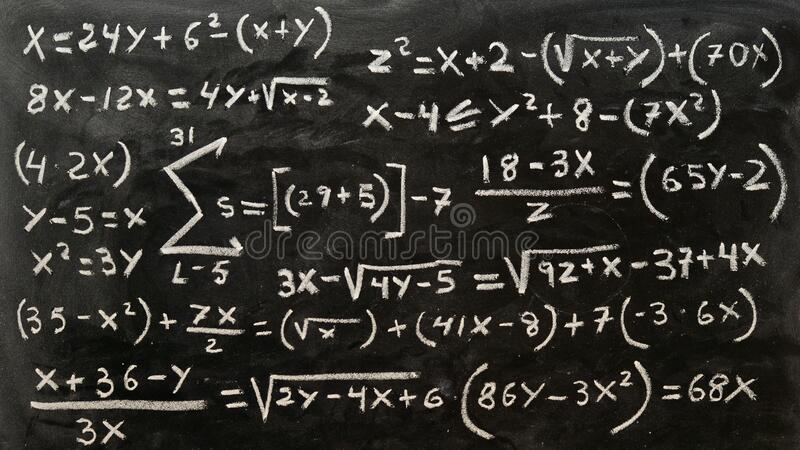 x=24y+6²-(x+y)
z²=x+2-(√x+y)+(70x)
8x-12x=4y+√x-2
x-4≤y²+8-(7x²)
(4·2x)
31
∑ S=[(29+5)]-7
L-5
18-3x/z=(65y-2)
y-5=x
x²=3y
3x-√4y-5=√92+x-37+4x
(35-x²)+7x/2=(√x)+(41x-8)+7(-3·6x)
x+36-y/3x=√2y-4x+6·(86y-3x²)=68x
dreamstime